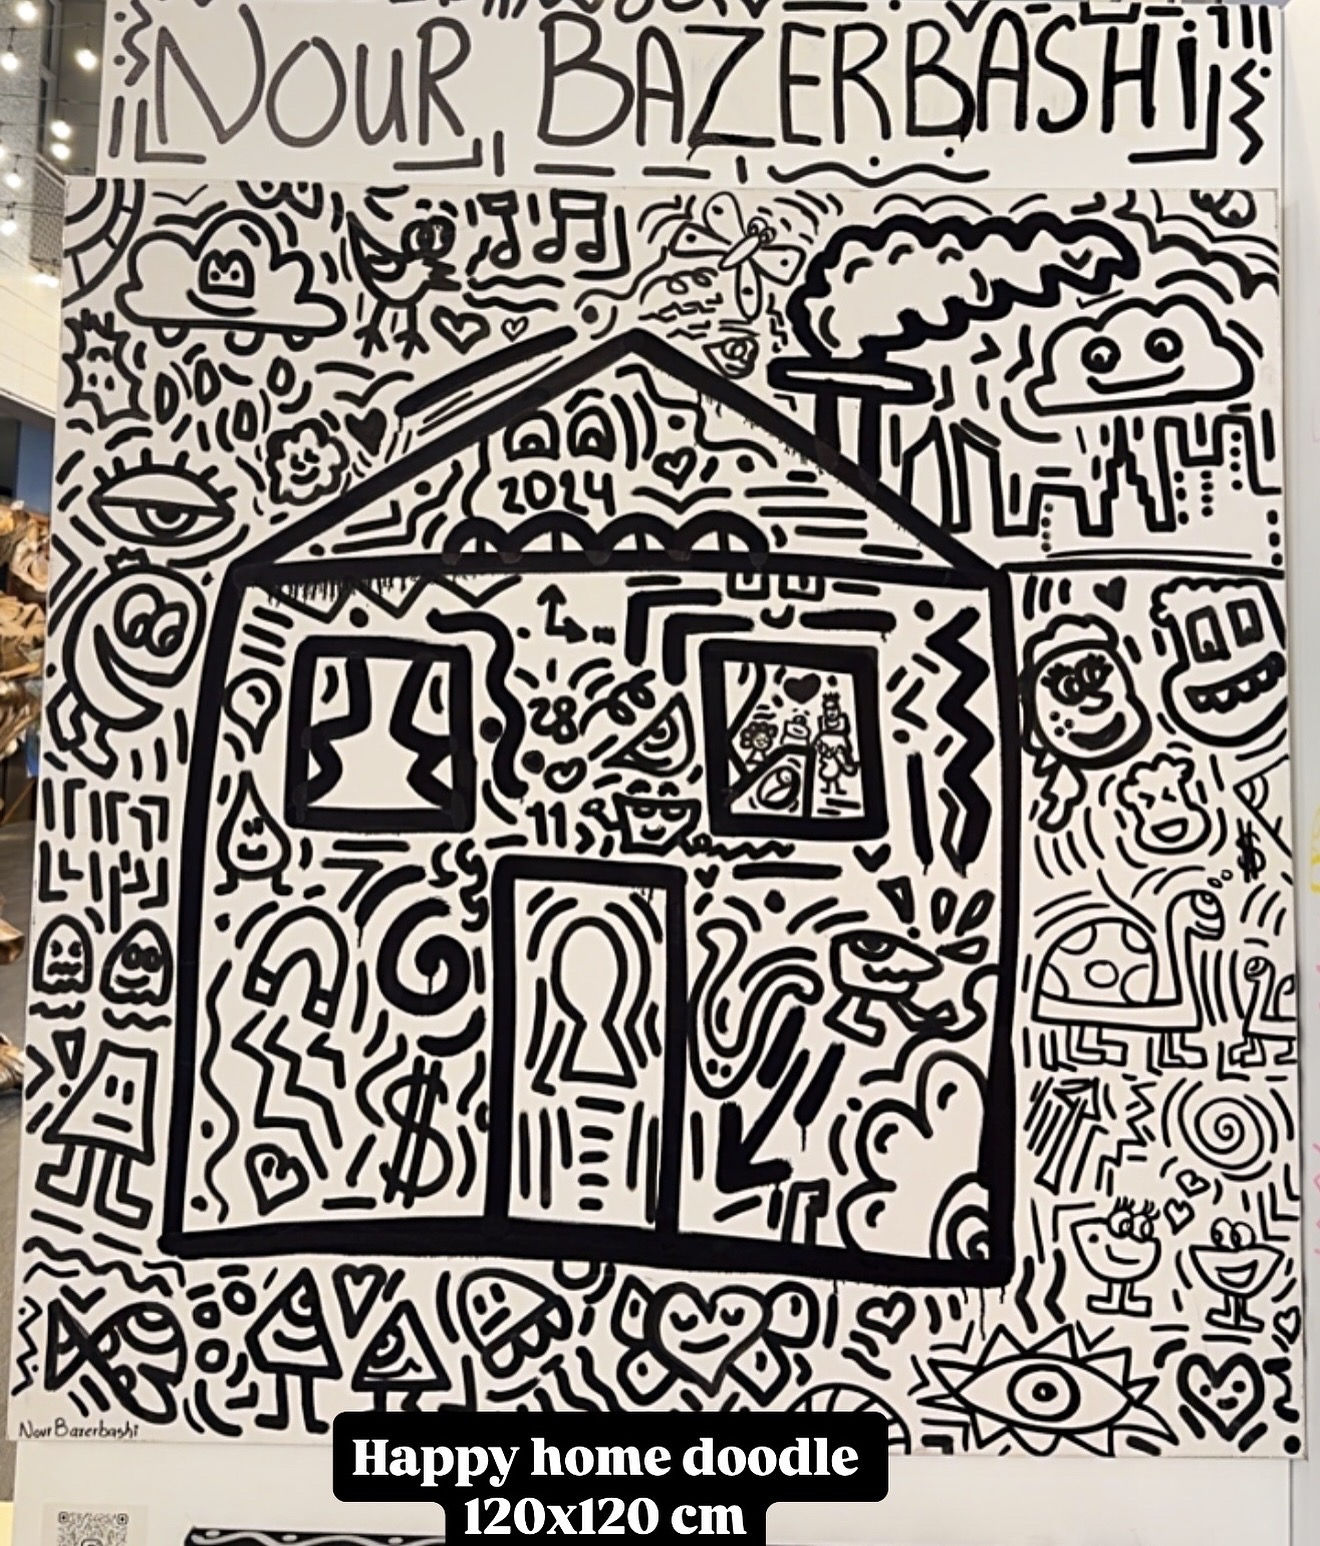 NOUR BAZERBASHi
2024
28
11
$
$
Nour Bazerbashi
Happy home doodle
120x120 cm